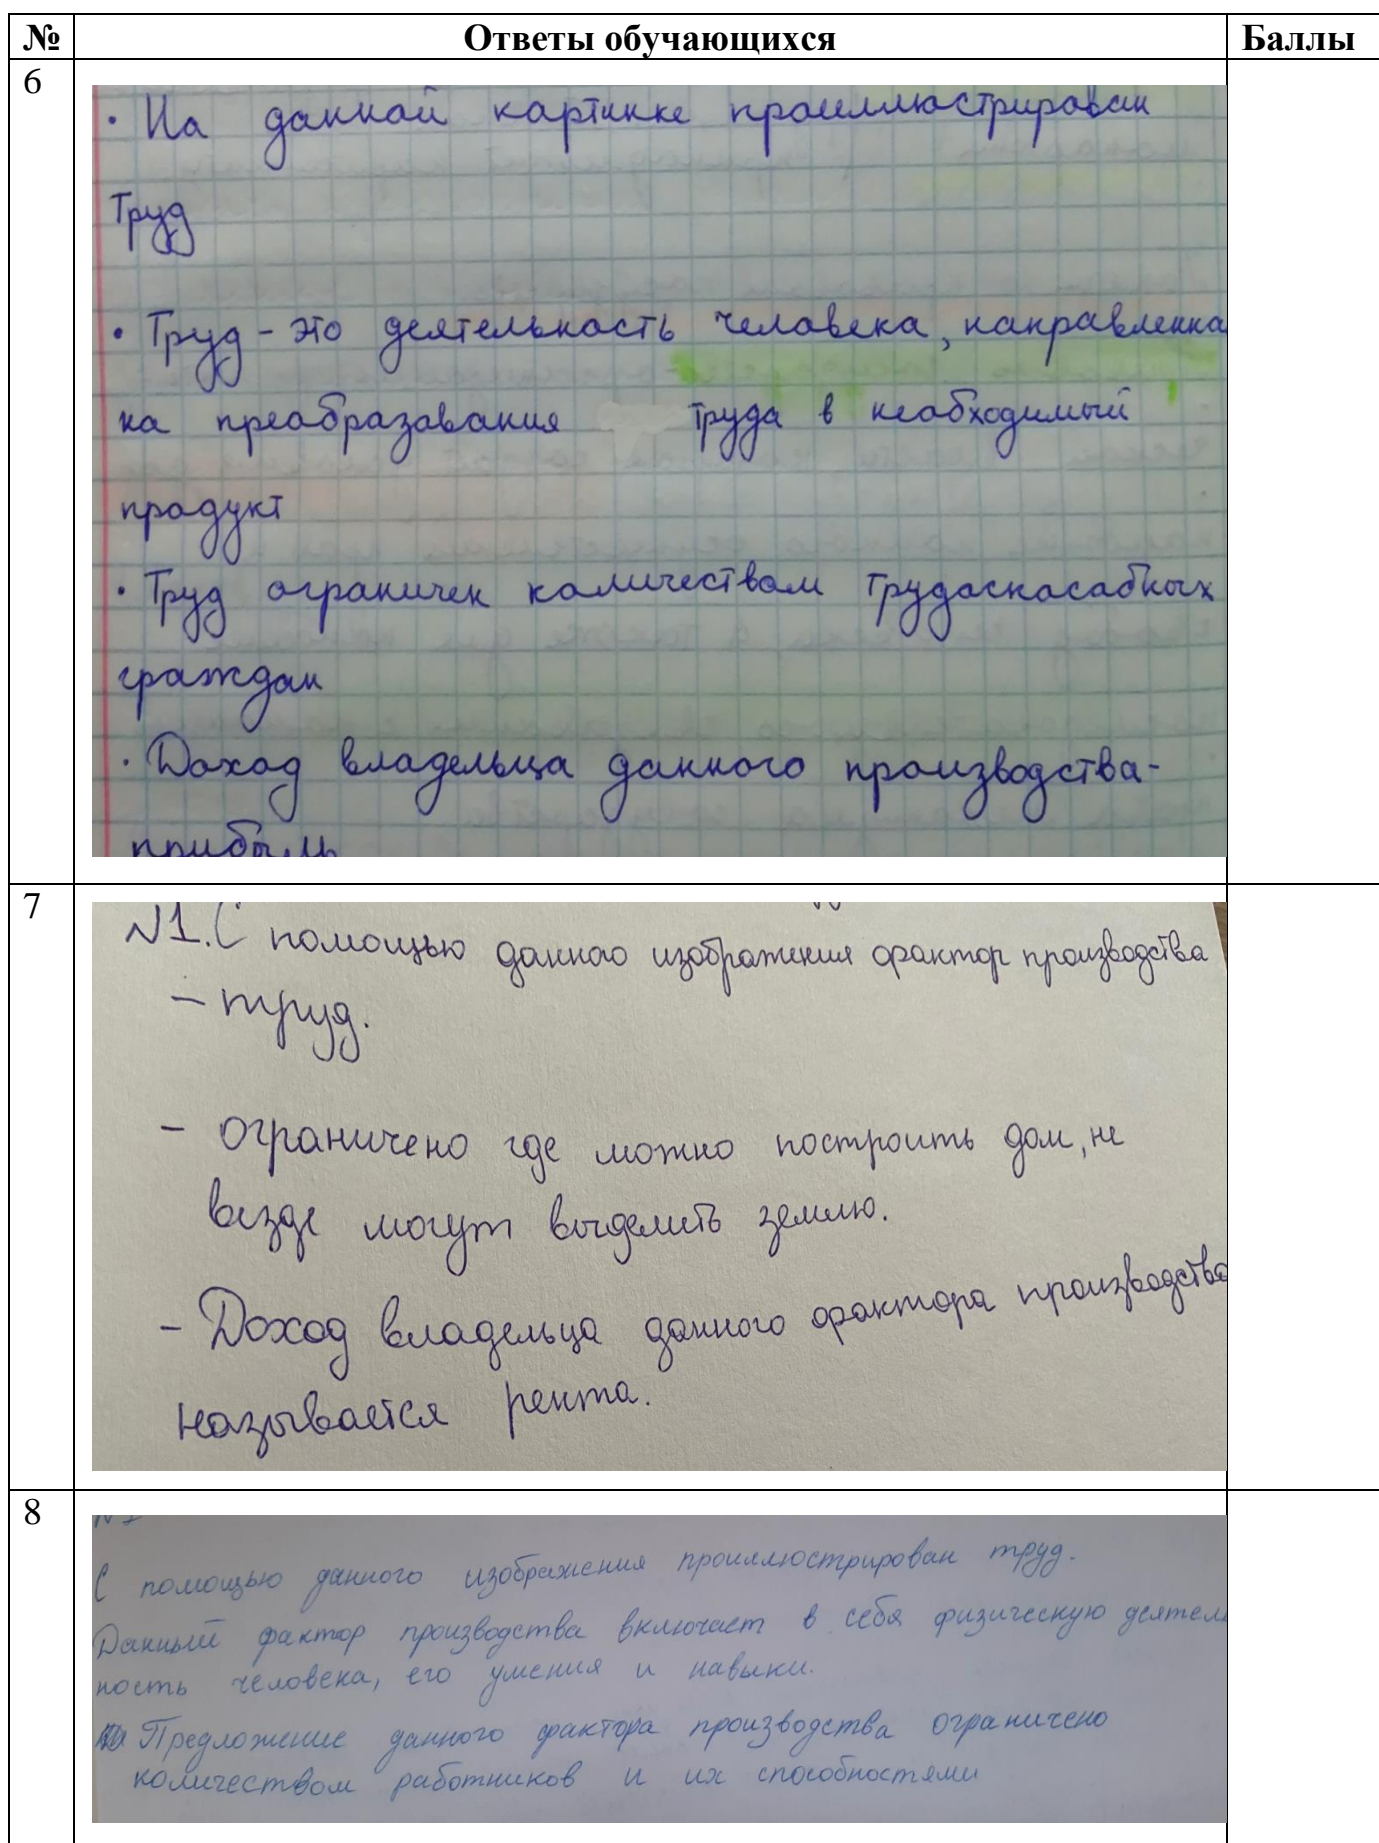 № Ответы обучающихся Баллы
6
• На данной картинке проиллюстрирован
Труд
• Труд - это деятельность человека, направленна
на преобразования труда в необходимый
продукт
• Труд ограничен количеством трудоспособных
граждан
• Доход владельца данного производства-
прибыль
7
№1. С помощью данного изображения фактор производства
- труд.
- ограничено где можно построить дом, не
везде могут выделить землю.
- Доход владельца данного фактора производства
называется рента.
8
№1
С помощью данного изображения проиллюстрирован труд.
Данный фактор производства включает в себя физическую деятель
ность человека, его умения и навыки.
Предложение данного фактора производства ограничено
количеством работников и их способностями